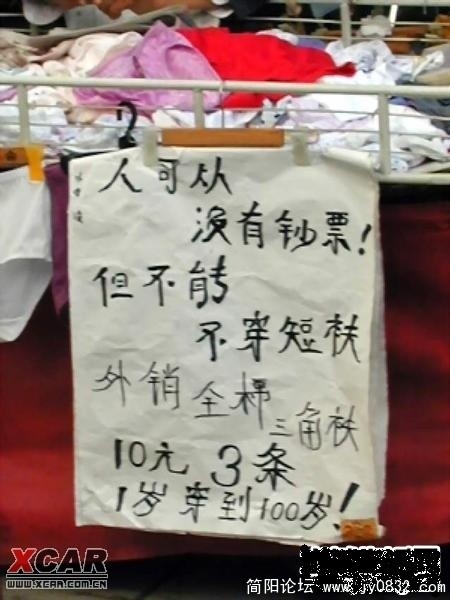 人可从
没有钞票!
但不能
不穿短衭
外销全棉
三角衭
10元 3条
1岁穿到100岁!
XCAR
WWW.XCAR.COM.CN
简阳论坛 www.jy0832.com